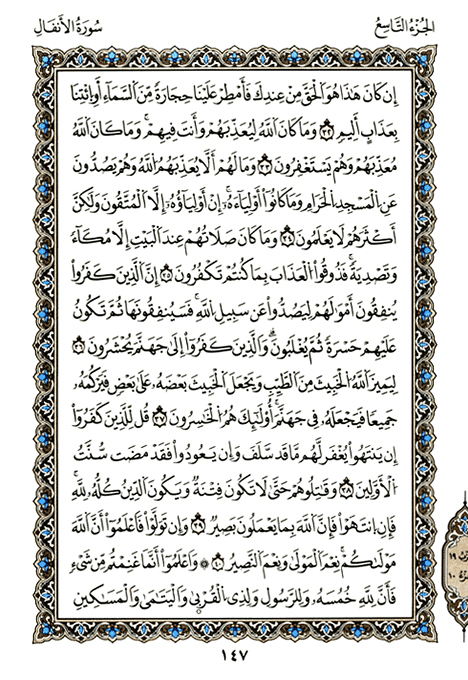 الجُزْءُ التَّاسِعُ
سُورَةُ الأَنفَالِ
إِن كَانَ هَٰذَا هُوَ ٱلْحَقَّ مِنْ عِندِكَ فَأَمْطِرْ عَلَيْنَا حِجَارَةً مِّنَ ٱلسَّمَآءِ أَوِ ٱئْتِنَا
بِعَذَابٍ أَلِيمٍ ٣٢ وَمَا كَانَ ٱللَّهُ لِيُعَذِّبَهُمْ وَأَنتَ فِيهِمْ ۚ وَمَا كَانَ ٱللَّهُ
مُعَذِّبَهُمْ وَهُمْ يَسْتَغْفِرُونَ ٣٣ وَمَا لَهُمْ أَلَّا يُعَذِّبَهُمُ ٱللَّهُ وَهُمْ يَصُدُّونَ
عَنِ ٱلْمَسْجِدِ ٱلْحَرَامِ وَمَا كَانُوٓا۟ أَوْلِيَآءَهُۥٓ ۚ إِنْ أَوْلِيَآؤُهُۥٓ إِلَّا ٱلْمُتَّقُونَ وَلَٰكِنَّ
أَكْثَرَهُمْ لَا يَعْلَمُونَ ٣٤ وَمَا كَانَ صَلَاتُهُمْ عِندَ ٱلْبَيْتِ إِلَّا مُكَآءً
وَتَصْدِيَةً ۚ فَذُوقُوا۟ ٱلْعَذَابَ بِمَا كُنتُمْ تَكْفُرُونَ ٣٥ إِنَّ ٱلَّذِينَ كَفَرُوا۟
يُنفِقُونَ أَمْوَٰلَهُمْ لِيَصُدُّوا۟ عَن سَبِيلِ ٱللَّهِ ۚ فَسَيُنفِقُونَهَا ثُمَّ تَكُونُ
عَلَيْهِمْ حَسْرَةً ثُمَّ يُغْلَبُونَ ۗ وَٱلَّذِينَ كَفَرُوٓا۟ إِلَىٰ جَهَنَّمَ يُحْشَرُونَ ٣٦
لِيَمِيزَ ٱللَّهُ ٱلْخَبِيثَ مِنَ ٱلطَّيِّبِ وَيَجْعَلَ ٱلْخَبِيثَ بَعْضَهُۥ عَلَىٰ بَعْضٍ فَيَرْكُمَهُۥ
جَمِيعًا فَيَجْعَلَهُۥ فِى جَهَنَّمَ ۚ أُو۟لَٰٓئِكَ هُمُ ٱلْخَٰسِرُونَ ٣٧ قُل لِّلَّذِينَ كَفَرُوٓا۟
إِن يَنتَهُوا۟ يُغْفَرْ لَهُم مَّا قَدْ سَلَفَ وَإِن يَعُودُوا۟ فَقَدْ مَضَتْ سُنَّتُ
ٱلْأَوَّلِينَ ٣٨ وَقَٰتِلُوهُمْ حَتَّىٰ لَا تَكُونَ فِتْنَةٌ وَيَكُونَ ٱلدِّينُ كُلُّهُۥ لِلَّهِ ۚ
فَإِنِ ٱنتَهَوْا۟ فَإِنَّ ٱللَّهَ بِمَا يَعْمَلُونَ بَصِيرٌ ٣٩ وَإِن تَوَلَّوْا۟ فَٱعْلَمُوٓا۟ أَنَّ ٱللَّهَ
مَوْلَىٰكُمْ ۚ نِعْمَ ٱلْمَوْلَىٰ وَنِعْمَ ٱلنَّصِيرُ ٤٠ ۞ وَٱعْلَمُوٓا۟ أَنَّمَا غَنِمْتُم مِّن شَىْءٍ
فَأَنَّ لِلَّهِ خُمُسَهُۥ وَلِلرَّسُولِ وَلِذِى ٱلْقُرْبَىٰ وَٱلْيَتَٰمَىٰ وَٱلْمَسَٰكِينِ
١٤٧